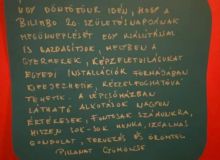 ÚGY DÖNTÖTTÜNK IDÉN, HOGY A
BILIMBO 20. SZÜLETÉSNAPJÁNAK
MEGÜNNEPLÉSÉT EGY KIÁLLÍTÁSSAL
IS GAZDAGÍTJUK, MELYBEN A
GYERMEKEK, KÉPZELETVILÁGUKAT
EGYEDI INSTALLÁCIÓK FORMÁJÁBAN
KIFEJEZHETIK, KÉZZELFOGHATÓVÁ
TEHETIK. A KÉPCSŐHÁZBAN
LÁTHATÓ ALKOTÁSOK NAGYON
ÉRTÉKESEK, FONTOSAK SZÁMUNKRA,
HISZEN SOK-SOK MUNKA, IZGALMAS
GONDOLAT, TERVEZÉS ÉS ÖRÖMTELI
PILLANAT GYÜMÖLCSE